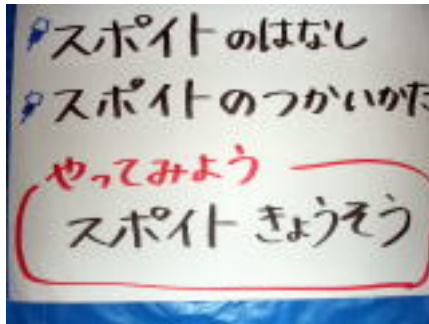 スポイトのはなし
スポイトのつかいかた
やってみよう
スポイトきょうそう